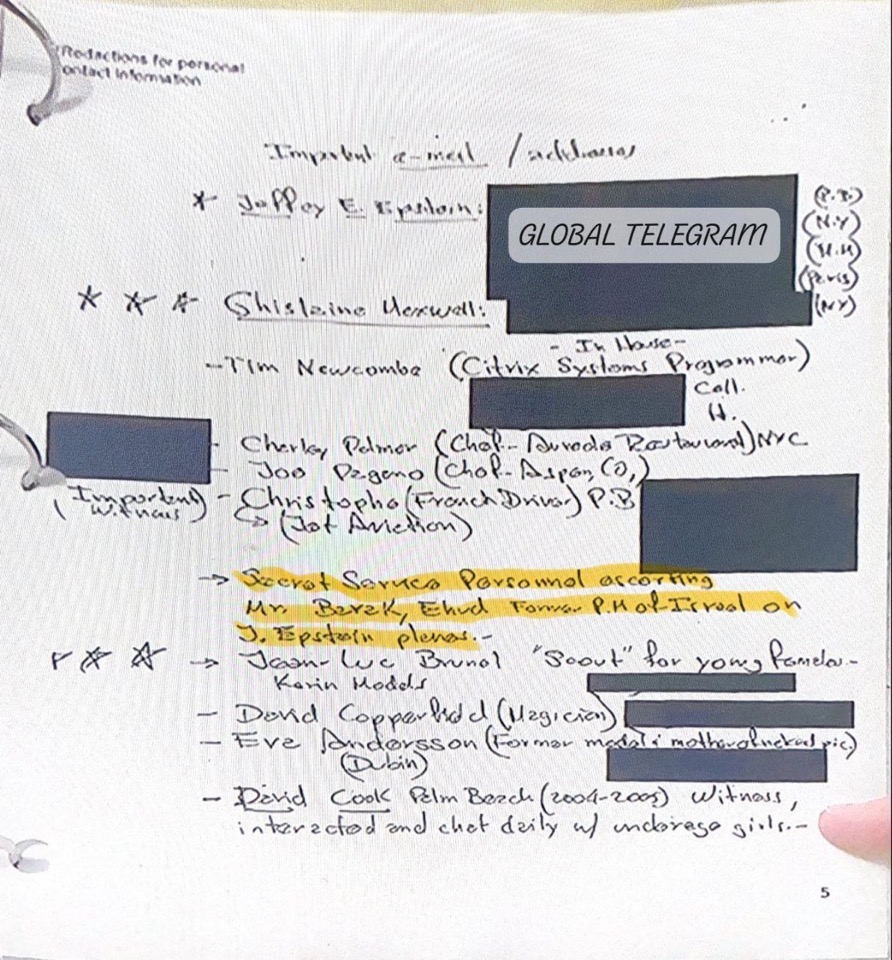 (Redactions for personal
ontact information
Important e-mail / addresses
* Jeffey E. Epstein:
(P.B.)
GLOBAL TELEGRAM
(N.Y)
(Paris)
* * * Ghislaine Maxwell:
(NY)
- In House -
- Tim Newcombe (Citrix Systems Programmer)
Cell.
H.
- Charley Palmer (Chef- Aureole Restaurant) NYC
- Joe Pagano (Chef- Aspen, CO,)
(Important Witness) - Christophe (French Driver) P.B
(Jet Aviation)
→ Secret Service Personnel escorting
Mr. Barak, Ehud Former P.M of Israel on
J. Epstein planes.-
→ Jean-Luc Brunel "Scout" for young females.-
Karin Models
- David Copperfield (Magician)
- Eva Andersson (Former model & mother of naked pic)
(Dubin)
- David Cook Palm Beach (2004-2005) witness,
interacted and chat daily w/ underage girls.-
5